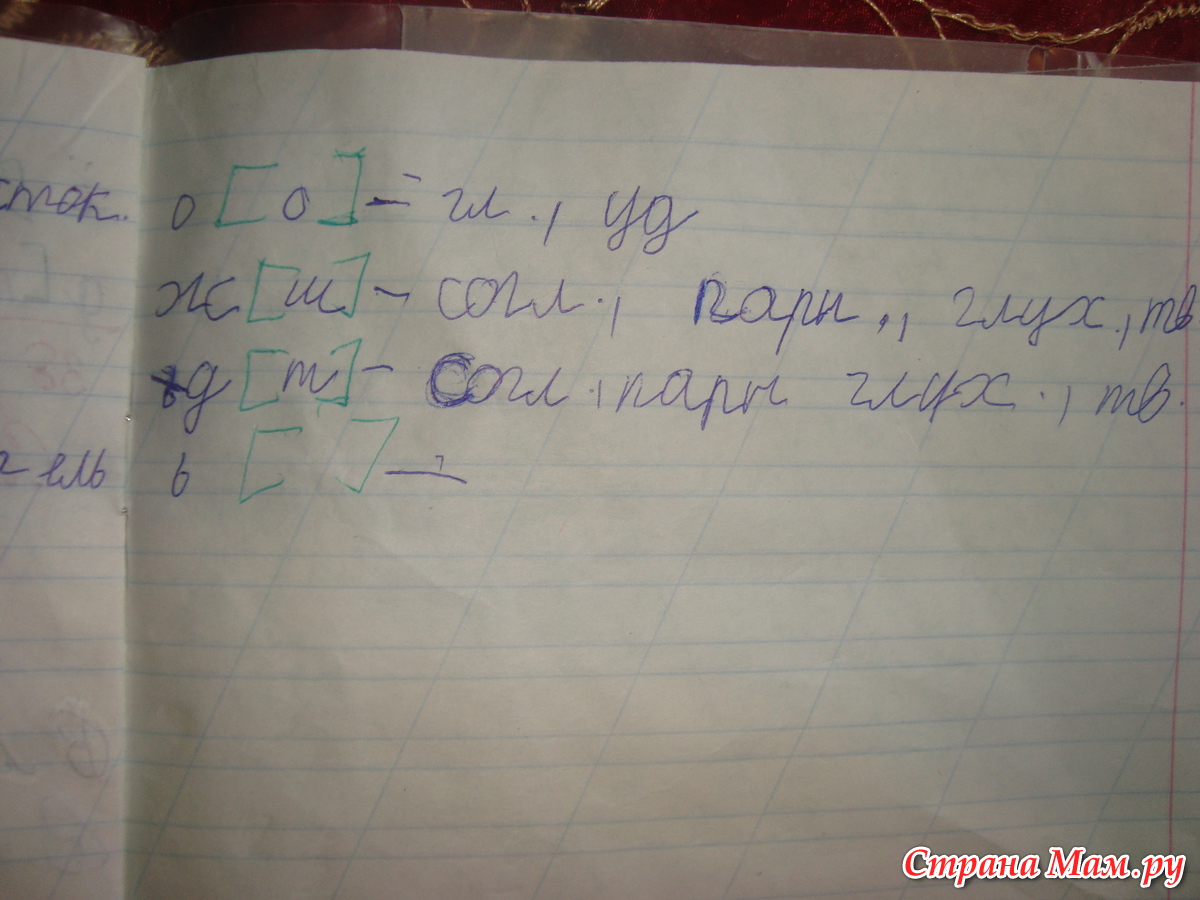 сток. о [о] - гл., уд
ж [ш] - согл., парн., глух., тв
д [т] - согл., парн глух., тв.
ель ь [ ] —
Страна Мам.ру